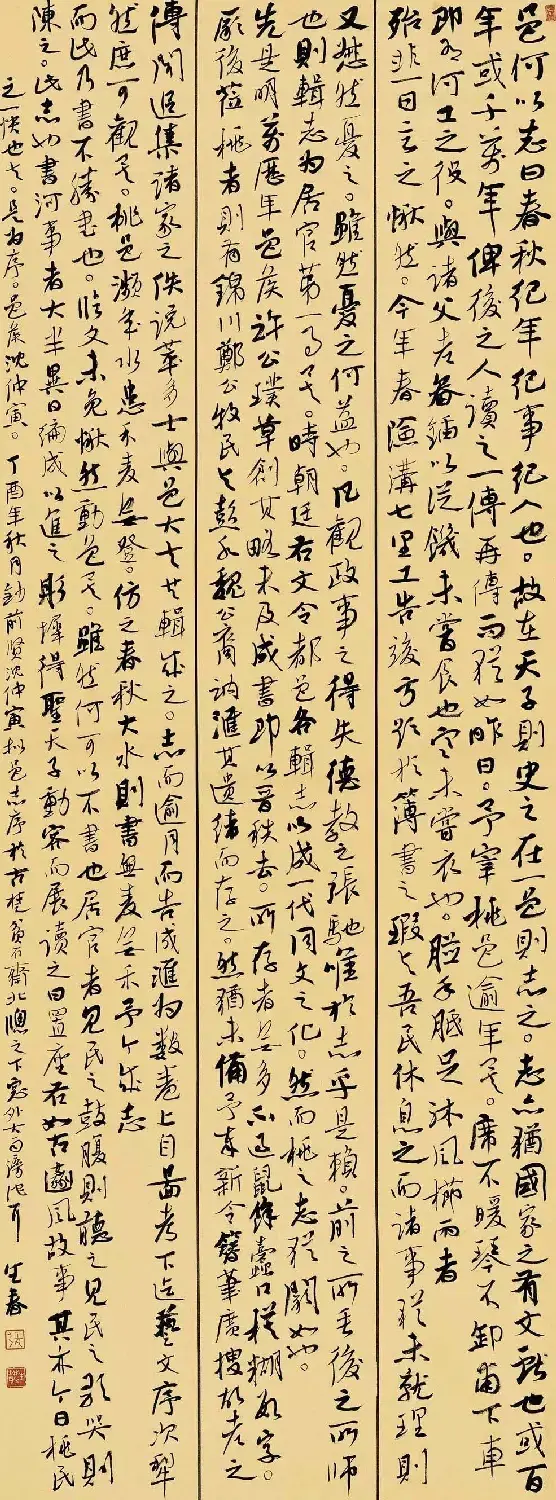 邑何以志曰春秋纪年纪事纪人也。故在天子则史之在一邑则志之。志亦犹國家之有文献也或百
年或千萬年俾後之人讀之一傳再傳而犹如昨日。予宰桃邑逾年矣。席不暖琴不卸甫下車
即有河工之役。與諸父老畚鍤以從饑未嘗食也寒未嘗衣也。胝手胝足沐風櫛雨者
殆非一日言之愀然。今年春漁溝七里工告竣方能於簿書之瑕与吾民休息之而諸事犹未就理則
又愀然憂之。雖然憂之何益也。凡觀政事之得失德教之張馳唯於志乎是賴。前之所垂後之所師
也則輯志为居官第一事矣。時朝廷右文令都邑各輯志以成一代同文之化。然而桃之志犹闕如也。
先是明萬歷年邑侯許公璞草創其略未及成書即以晋秩去。所存者無多亦逗鼠餘蠹口模糊如字。
厥後莅桃者則有錦川鄭公牧民与彭水魏公裔訥滙其遺緒而存之。然猶未備予奉新令簪筆廣搜故老之
傳聞遐集諸家之佚說萃多士與邑大夫共輯成之。志而逾月而告成滙为數卷上自圖考下迄藝文序次犁
然庶可觀矣。桃邑瀕年水患禾麦無登。仿之春秋大水則書無麦無禾予今之成志
而此乃書不勝書也。臨文未免愀然動色矣。雖然何可以不書也居官者見民之鼓腹則聽之見民之號哭則
陳之。此志也書河事者大半異日編成以進之彤墀得聖天子動容而展讀之曰置座右如古豳風故事其亦今日桃民
之一快也夫。是为序。邑侯沈仲寅。丁酉年秋月鈔前賢沈仲寅桃邑志序於古楚貧石齋北牕之下窓外大雨滂沱耳 生春